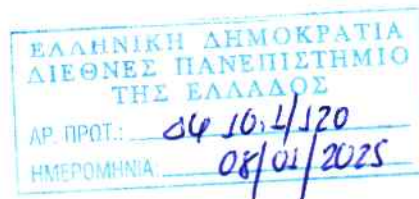 ΕΛΛΗΝΙΚΗ ΔΗΜΟΚΡΑΤΙΑ
ΔΙΕΘΝΕΣ ΠΑΝΕΠΙΣΤΗΜΙΟ
ΤΗΣ ΕΛΛΑΔΟΣ
ΑΡ. ΠΡΩΤ.: 10.1/120
ΗΜΕΡΟΜΗΝΙΑ: 08/01/2025